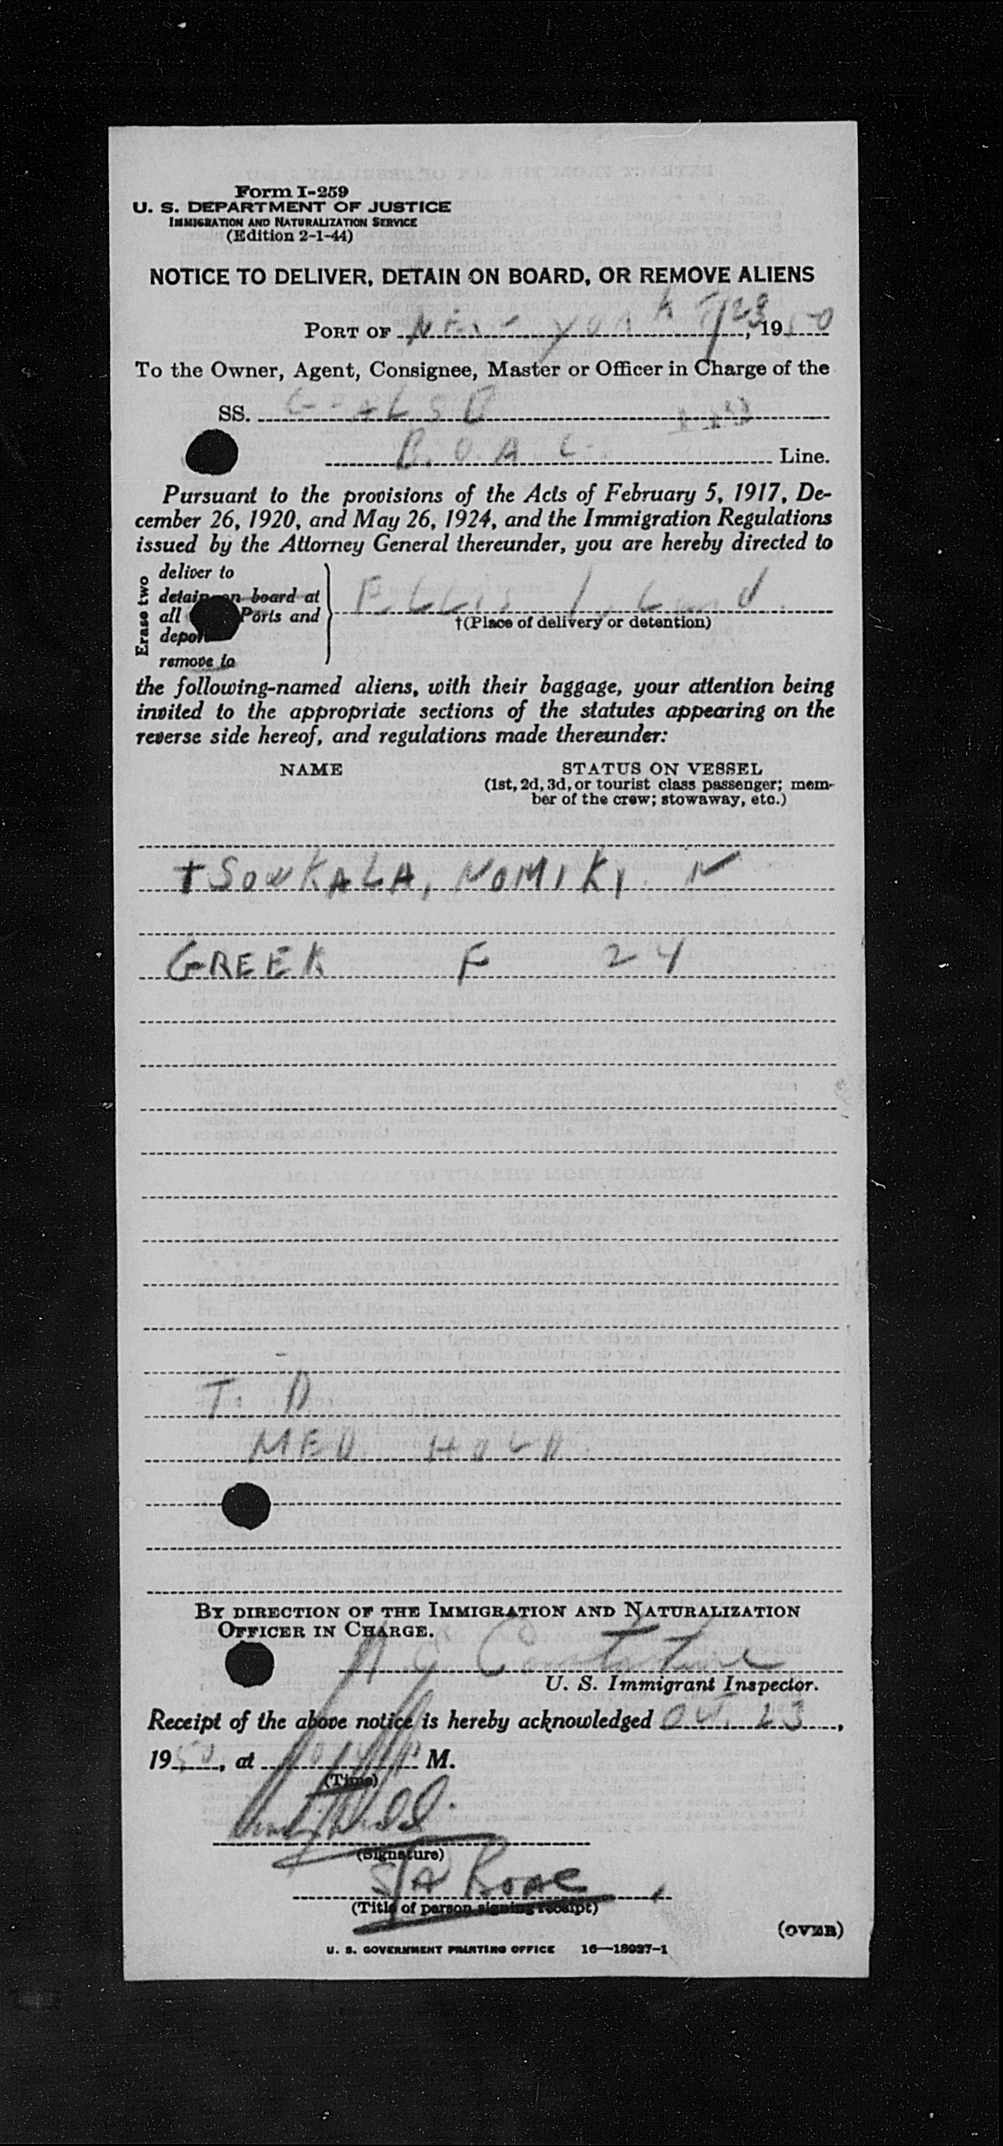 Form I-259
U. S. DEPARTMENT OF JUSTICE
IMMIGRATION AND NATURALIZATION SERVICE
(Edition 2-1-44)
NOTICE TO DELIVER, DETAIN ON BOARD, OR REMOVE ALIENS
PORT OF NEW YORK, 1950
To the Owner, Agent, Consignee, Master or Officer in Charge of the
SS. G-ALSB
B.O.A.C. Line.
Pursuant to the provisions of the Acts of February 5, 1917, De-
cember 26, 1920, and May 26, 1924, and the Immigration Regulations
issued by the Attorney General thereunder, you are hereby directed to
Erase two
deliver to
detain on board at
all Ports and
deport
remove to
Ellis Island.
†(Place of delivery or detention)
the following-named aliens, with their baggage, your attention being
invited to the appropriate sections of the statutes appearing on the
reverse side hereof, and regulations made thereunder:
NAME STATUS ON VESSEL
(1st, 2d, 3d, or tourist class passenger; mem-
ber of the crew; stowaway, etc.)
TSOUKALA, NOMIKI
GREEK F 24
T. D
MED. HOLD.
BY DIRECTION OF THE IMMIGRATION AND NATURALIZATION
OFFICER IN CHARGE.
U. S. Immigrant Inspector.
Receipt of the above notice is hereby acknowledged Oct. 23,
1950, at M.
(Time)
(Signature)
BOAC
(Title of person signing receipt)
(OVER)
U. S. GOVERNMENT PRINTING OFFICE 16—18027-1